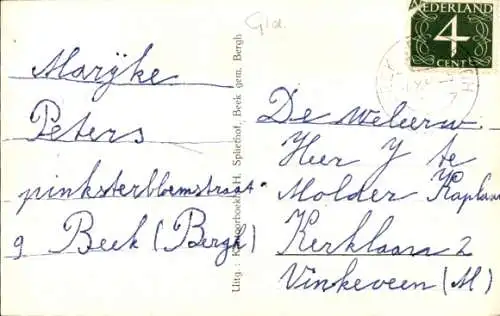 Gld.
NEDERLAND
4
CENT
Marijke
Peters
pinksterbloemstraat
9 Beek (Bergh)
Uitg.: H. Spliethof, Beek gem. Bergh
De Weleerw.
Heer Y te
Molder Kapelaan
Kerklaan 2
Vinkeveen (M)